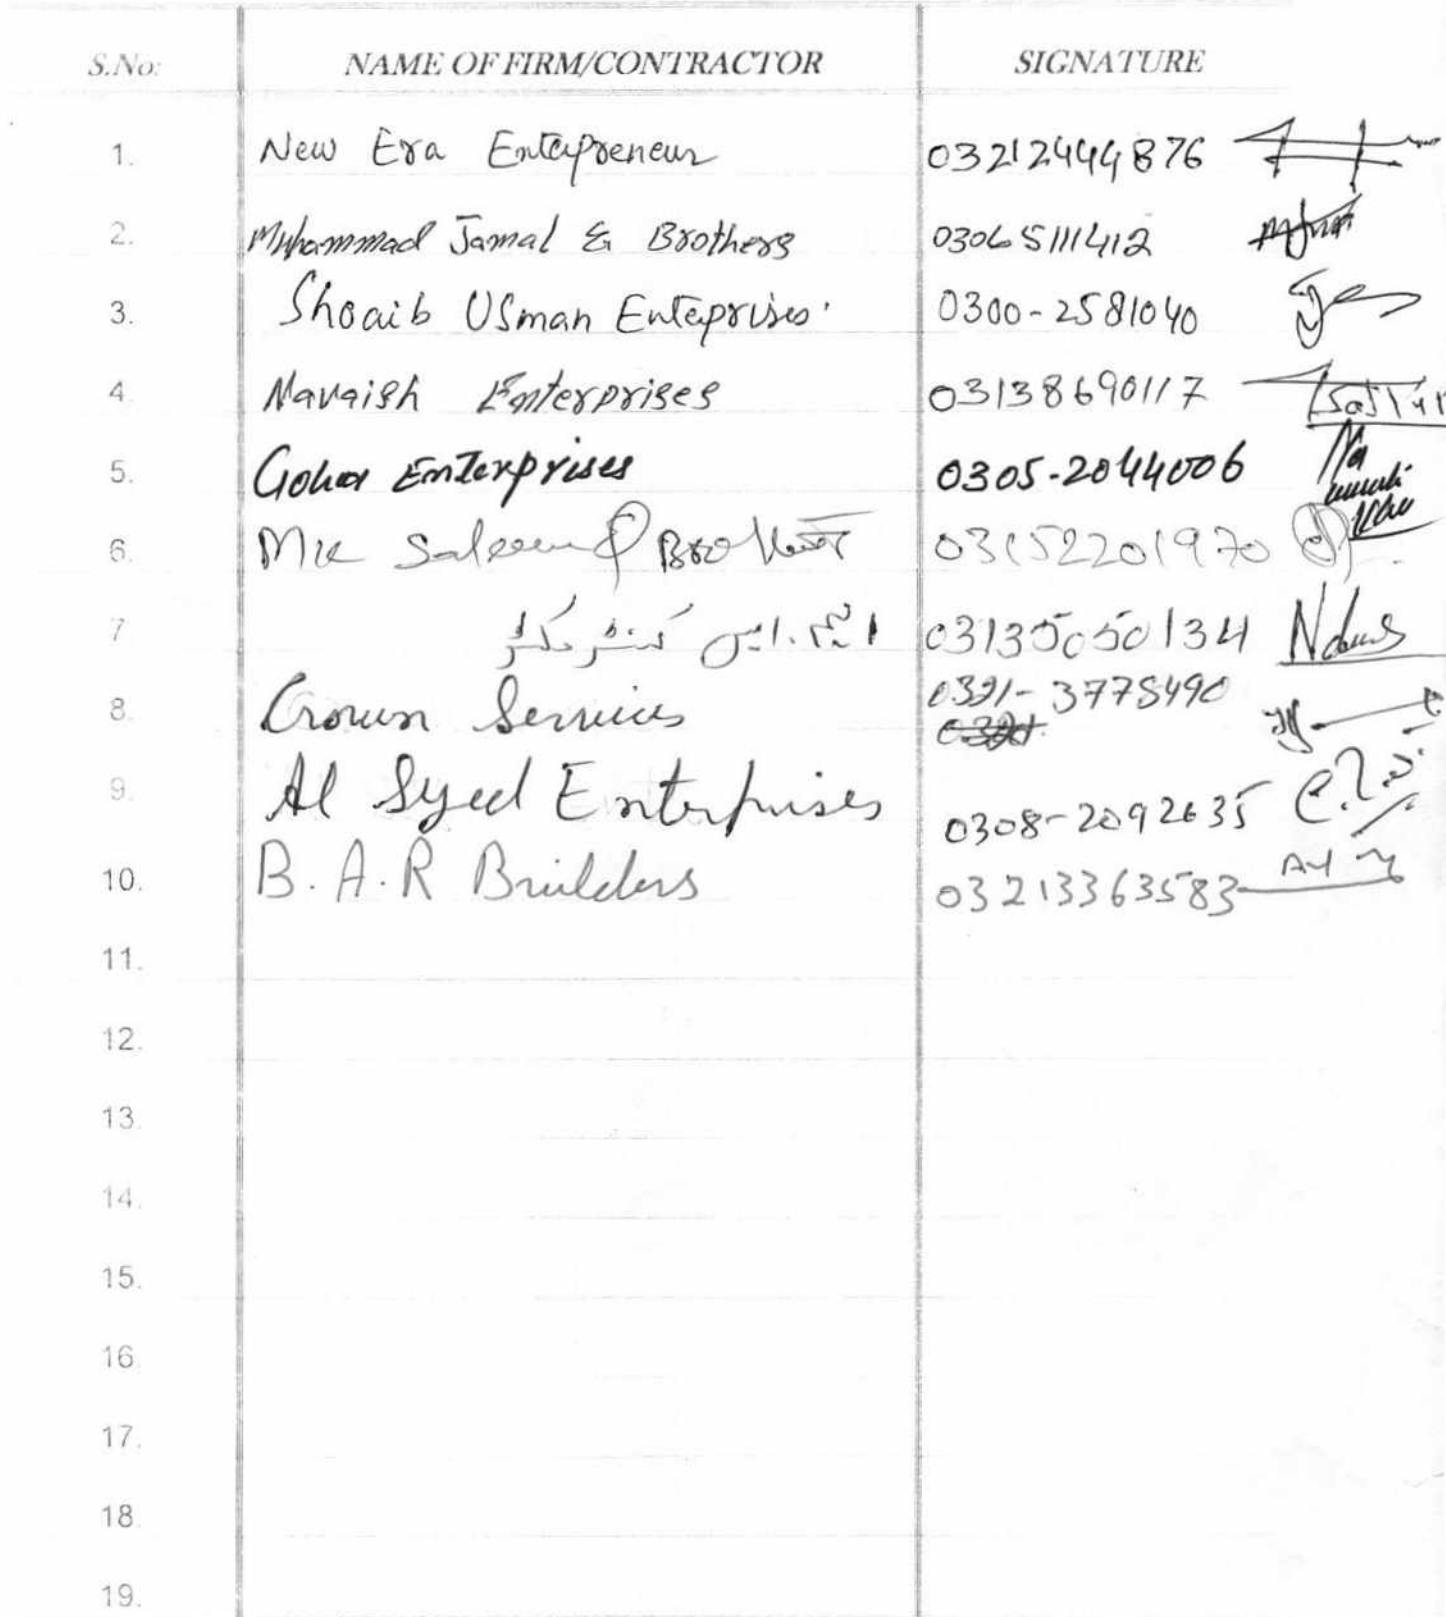 S.No: NAME OF FIRM/CONTRACTOR SIGNATURE
1. New Era Entepreneur 03212444876
2. Muhammad Jamal & Brothers 03065111412
3. Shoaib USman Enteprises 0300-2581040
4. Navaish Enterprises 03138690117
5. Enterprises 0305-2044006
6. Saleem & Brother 03152201970
7 ایم.ایس کنٹریکٹر 03135050134
8. Crown Services 0321-3775490
9. Al Syed Enterprises 0308-2092635
10. B.A.R Builders 03213363583
11.
12.
13.
14.
15.
16.
17.
18.
19.